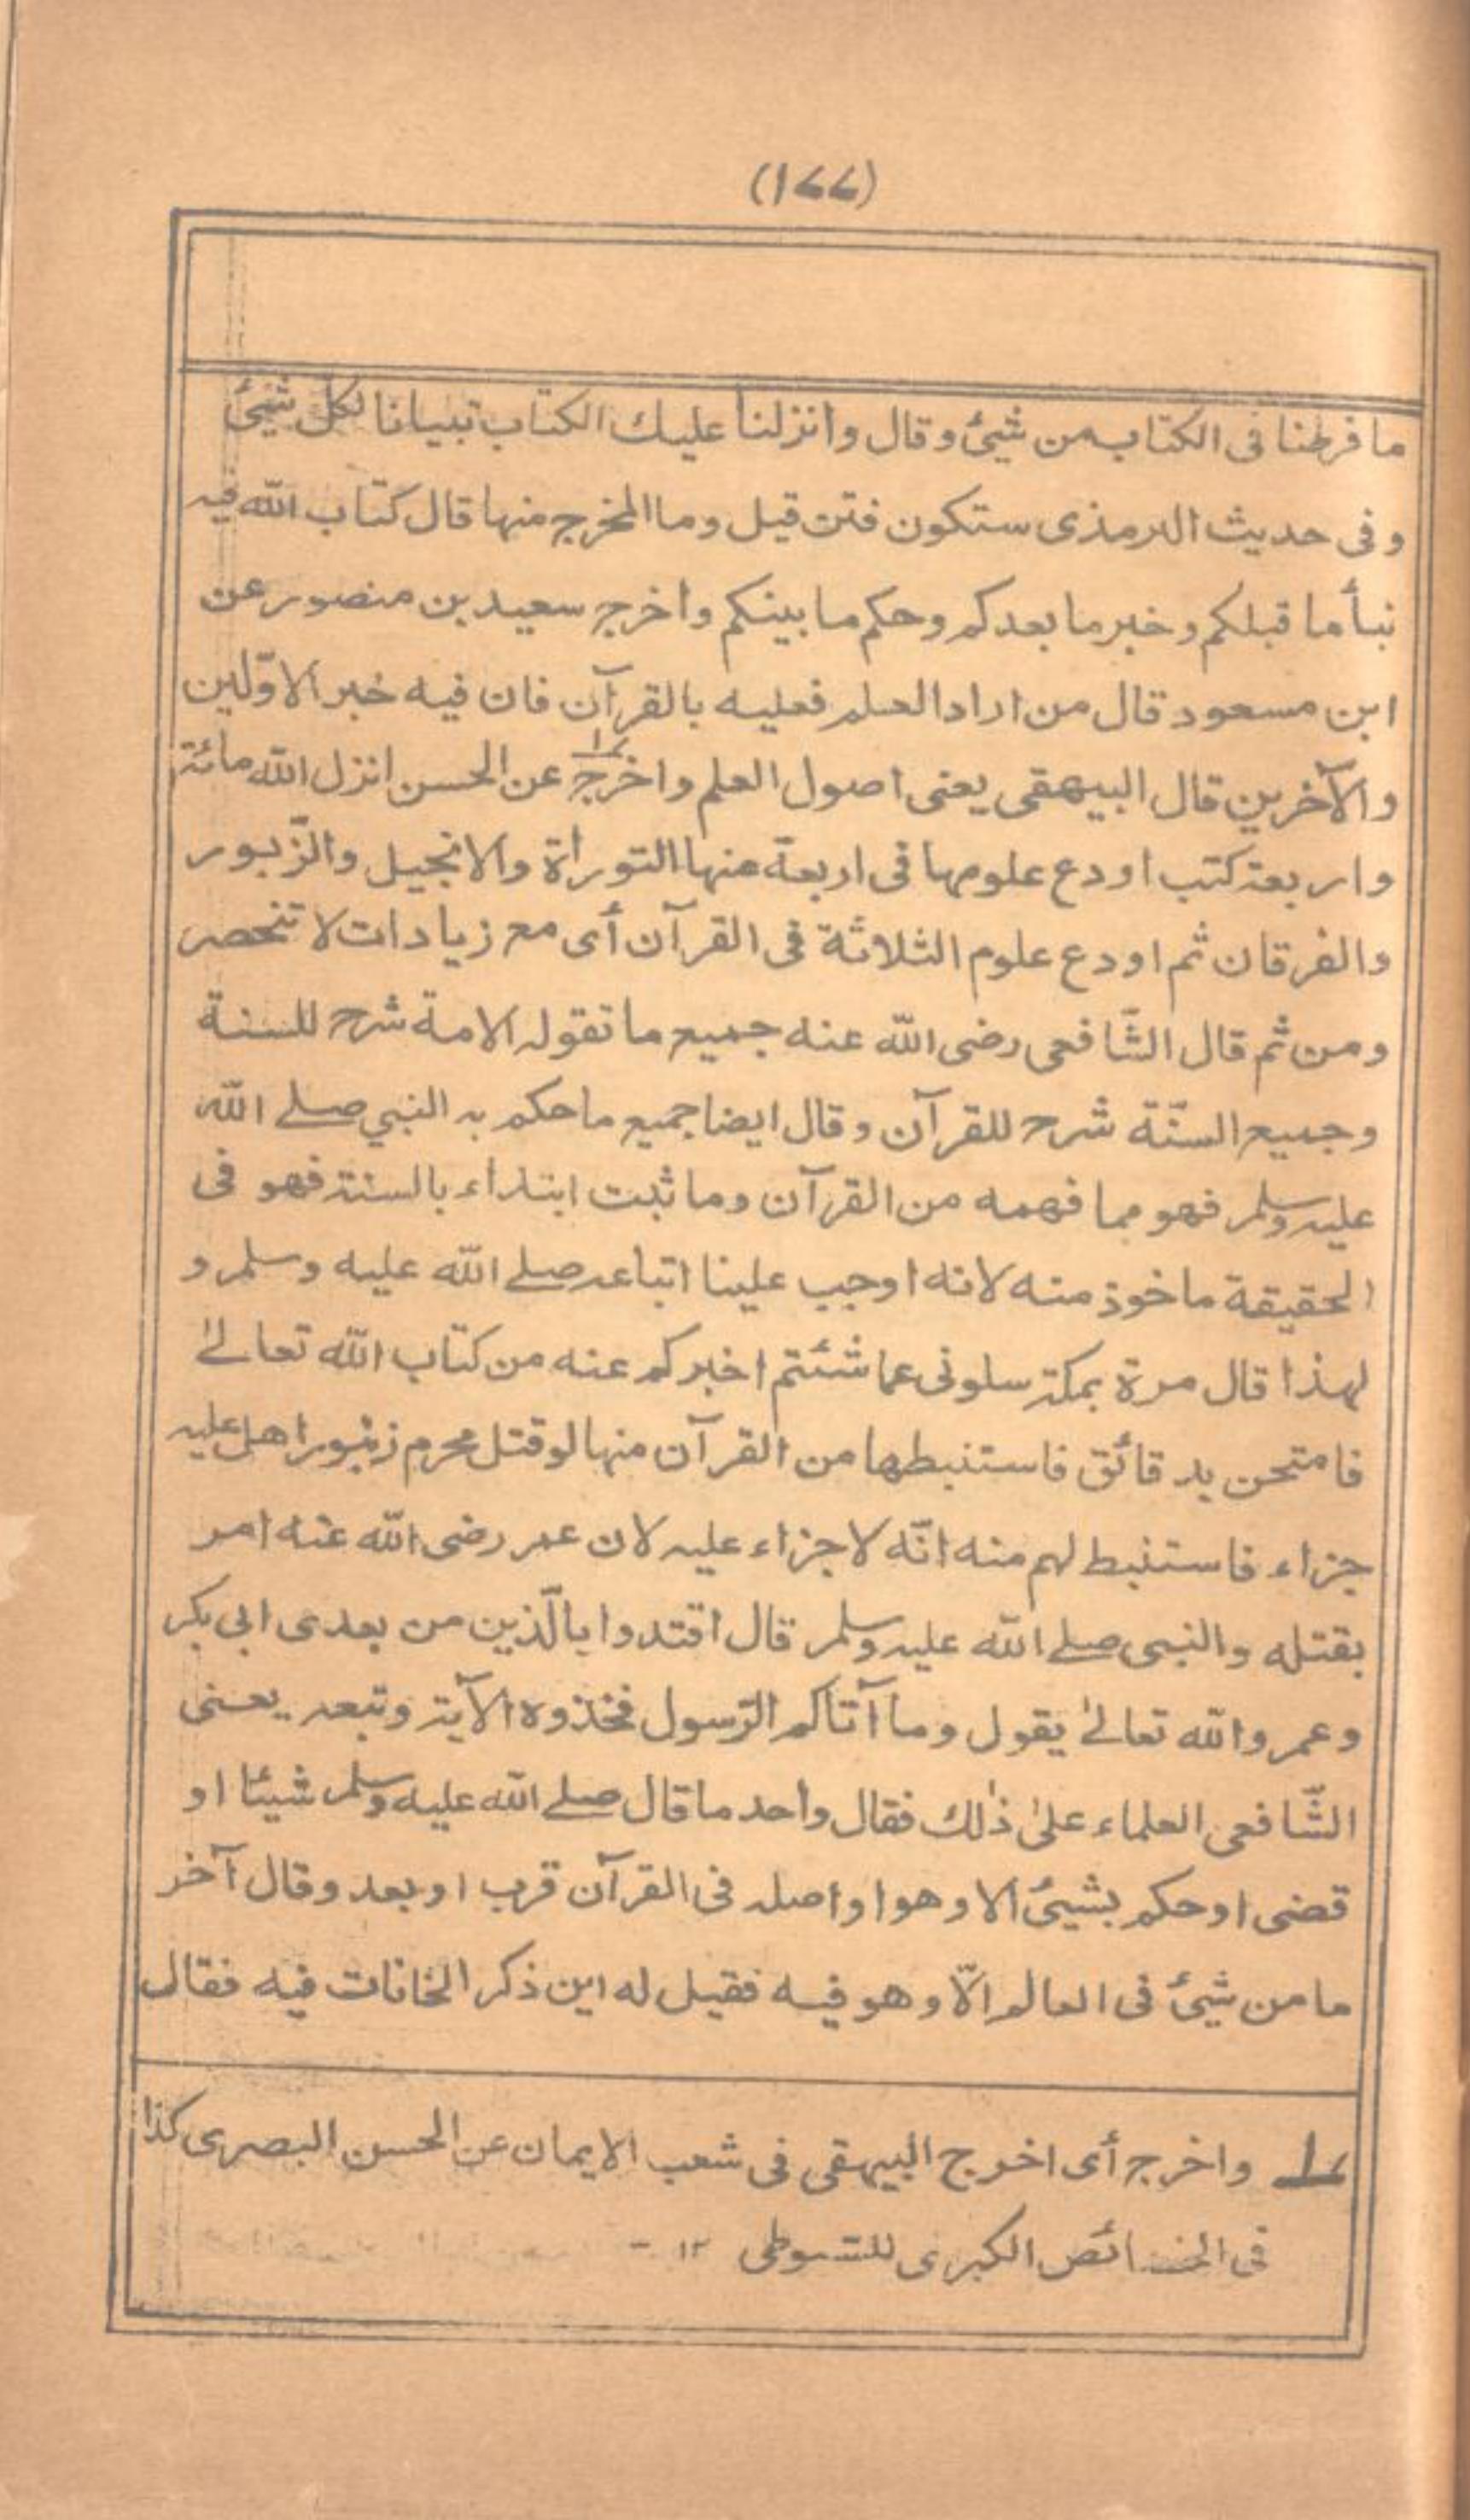 (۱۷۷)
ما فرطنا فی الکتاب من شیئ وقال وانزلنا علیك الکتاب تبیانا لکل شیئ
وفی حدیث الترمذی ستکون فتن قیل وما المخرج منها قال کتاب اللّٰه فیه
نبأ ما قبلکم وخبر ما بعدکم وحکم ما بینکم واخرج سعید بن منصور عن
ابن مسعود قال من اراد العلم فعلیه بالقرآن فان فیه خبر الاوّلین
والآخرین قال البیهقی یعنی اصول العلم واخرج ۱؎ عن الحسن انزل اللّٰه مائة
واربعة کتب اودع علومها فی اربعة منها التوراة والانجیل والزّبور
والفرقان ثم اودع علوم الثلاثة فی القرآن أی مع زیادات لا تنحصر
ومن ثم قال الشّافعی رضی اللّٰه عنه جمیع ما تقوله الامة شرح للسنة
وجمیع السنّة شرح للقرآن وقال ایضا جمیع ما حکم به النبي صلے اللّٰه
علیه وسلم فهو مما فهمه من القرآن وما ثبت ابتداء بالسنة فهو فی
الحقیقة ماخوذ منه لانه اوجب علینا اتباعه صلے اللّٰه علیه وسلم و
لهذا قال مرة بمکة سلونی عما شئتم اخبرکم عنه من کتاب اللّٰه تعالیٰ
فامتحن بدقائق فاستنبطها من القرآن منها لو قتل محرم زنبورا هل علیه
جزاء فاستنبط لهم منه انّه لا جزاء علیه لان عمر رضی اللّٰه عنه امر
بقتله والنبی صلے اللّٰه علیه وسلم قال اقتدوا بالّذین من بعدی ابی بکر
وعمر واللّٰه تعالیٰ یقول وما آتاکم الرّسول فخذوه الآیة وتبعه یعنی
الشّافعی العلماء علیٰ ذٰلك فقال واحد ما قال صلے اللّٰه علیه وسلم شیئا او
قضی او حکم بشیئ الا وهو او اصله فی القرآن قرب او بعد وقال آخر
ما من شیئ فی العالم الّا وهو فیه فقیل له این ذکر الخانات فیه فقال
۱؎ واخرج أی اخرج البیهقی فی شعب الایمان عن الحسن البصری کذا
فی الخصائص الکبری للسّیوطی ۱۲ -